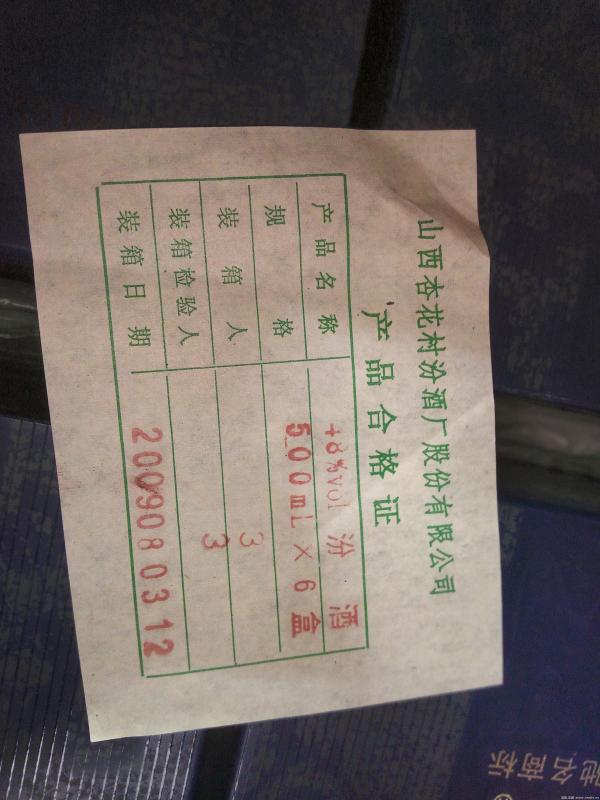 山西杏花村汾酒厂股份有限公司
产品合格证
产品名称 48%vol 汾酒
规格 500mL×6盒
装箱人 3
装箱检验人 3
装箱日期 20090803 12
名商标